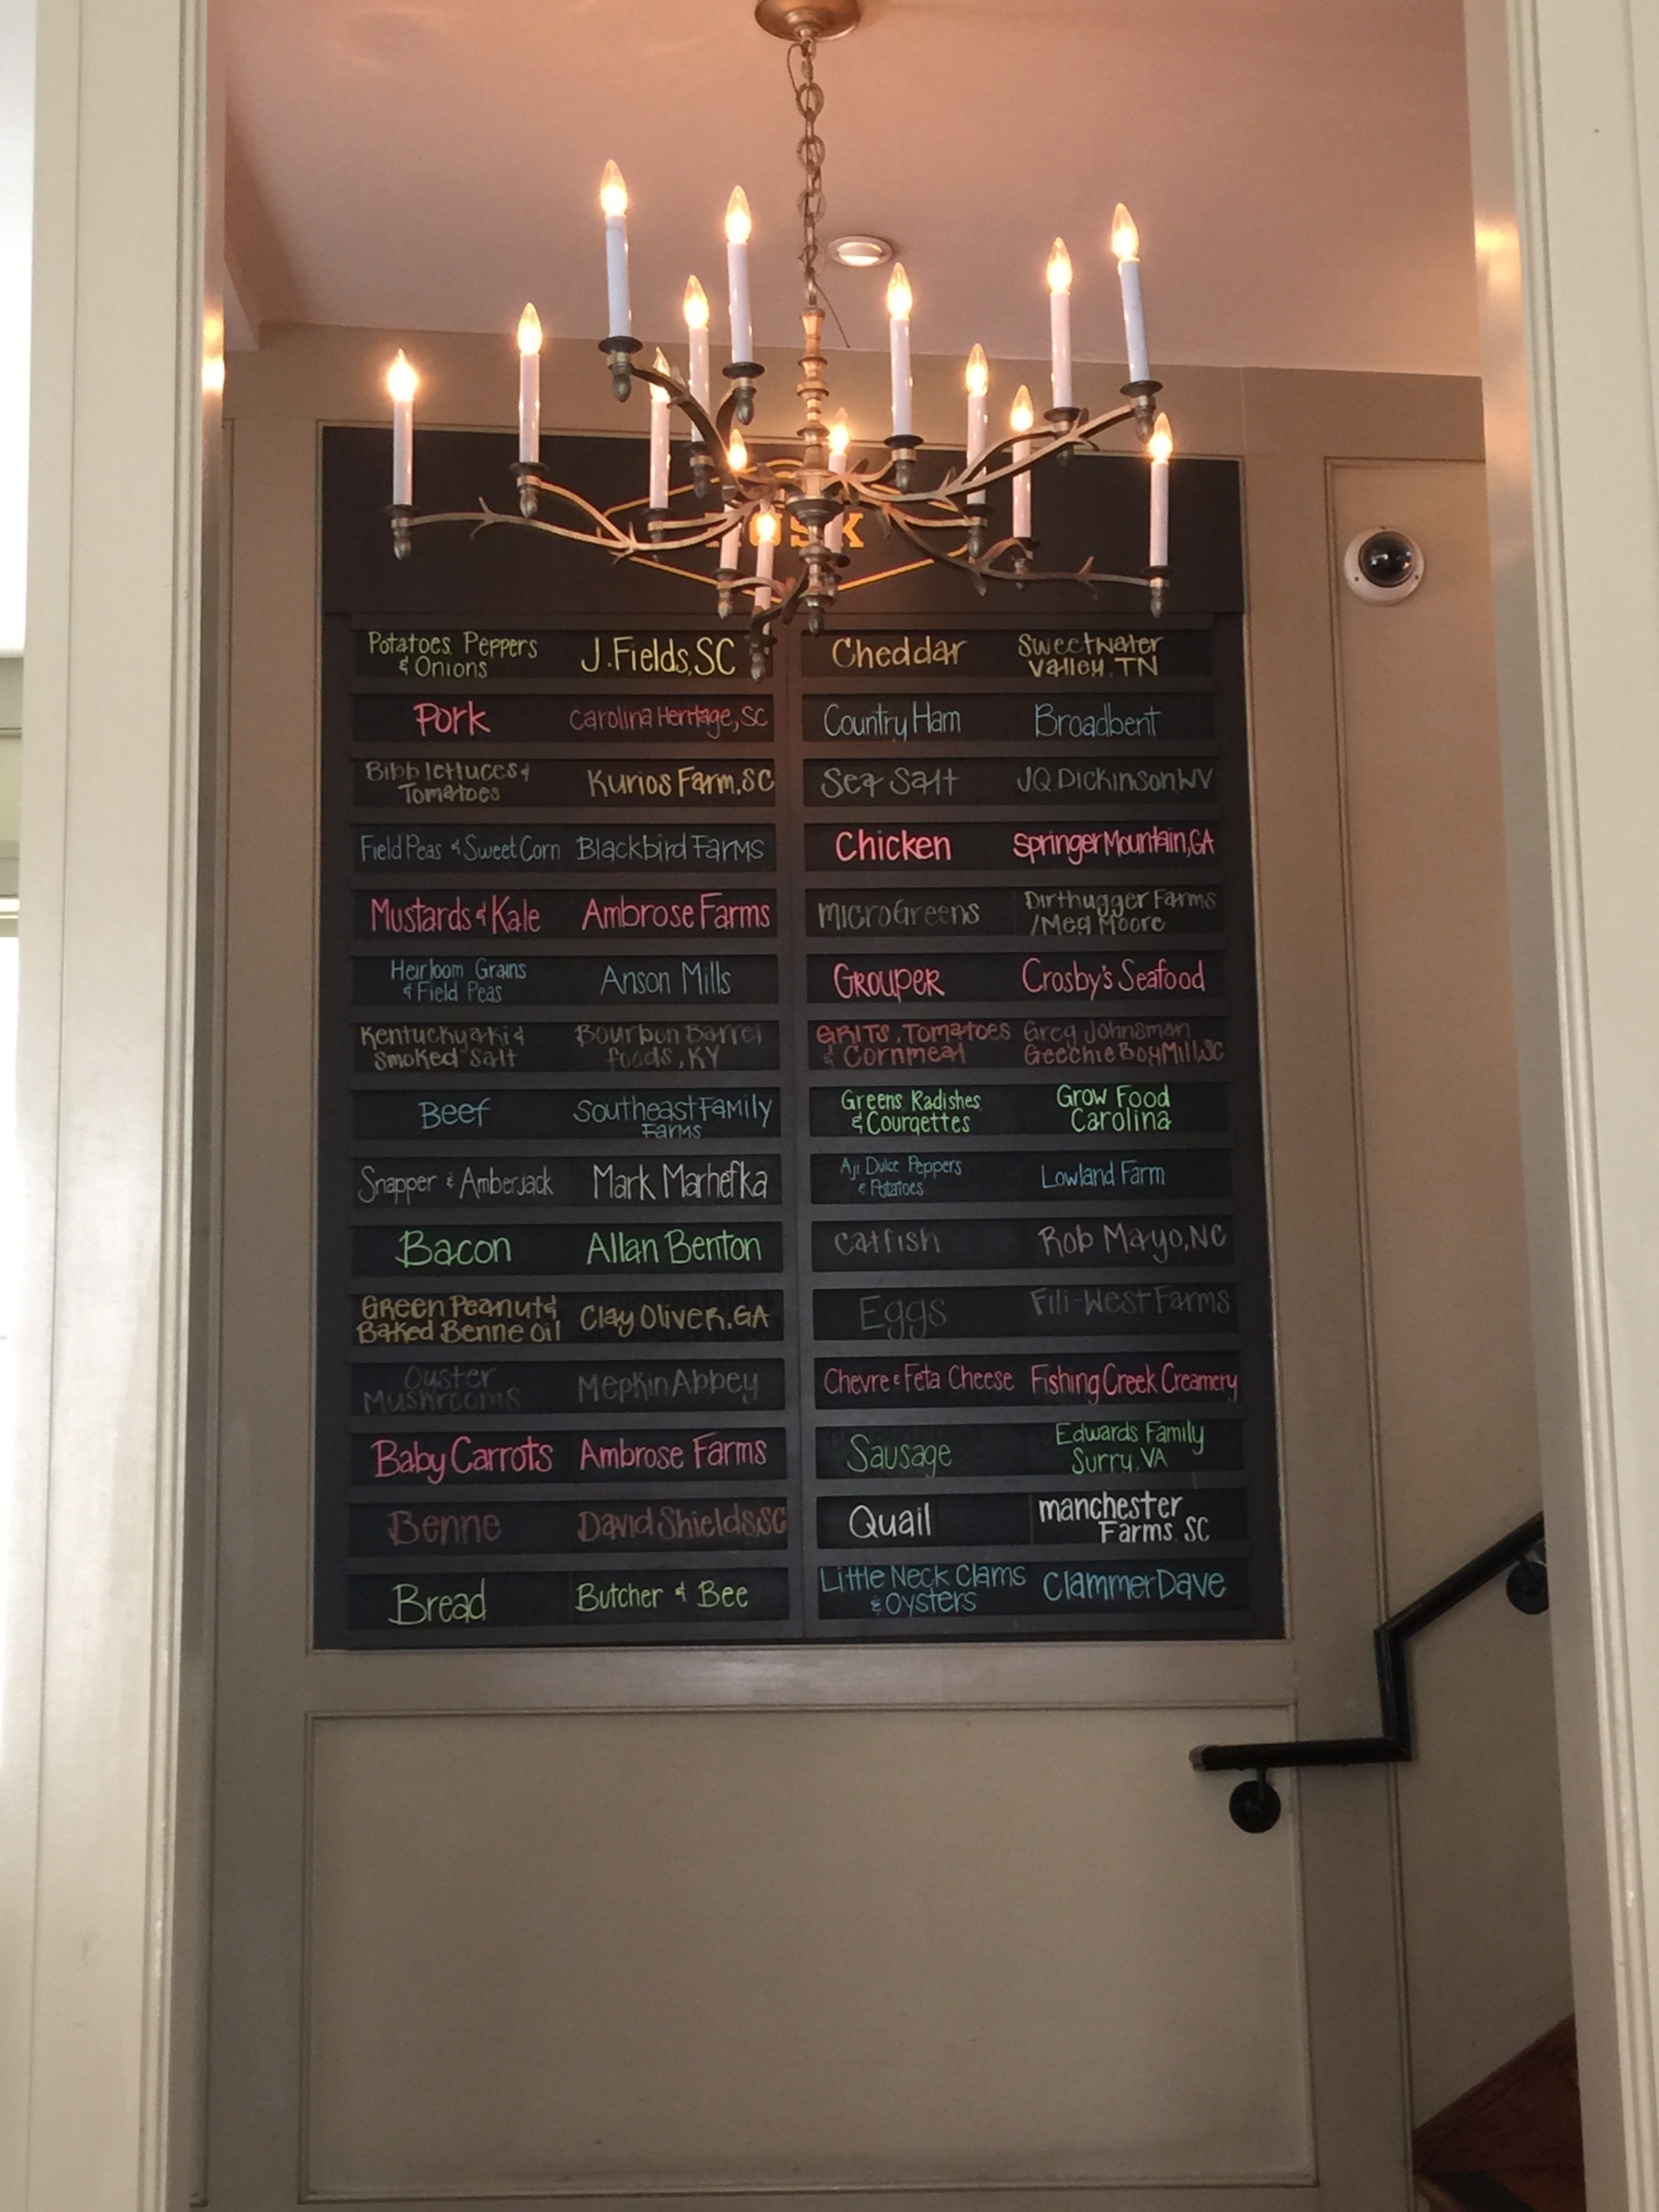 HUSK
Potatoes, Peppers
& Onions
J. Fields, SC
Pork
Carolina Heritage, SC
Bibb lettuces &
Tomatoes
Kurios Farm, SC
Field Peas & Sweet Corn
Blackbird Farms
Mustards & Kale
Ambrose Farms
Heirloom Grains
& Field Peas
Anson Mills
Kentuckyaki &
Smoked Salt
Bourbon Barrel
foods, KY
Beef
Southeast Family
Farms
Snapper & Amberjack
Mark Marhefka
Bacon
Allan Benton
Green Peanut &
Baked Benne oil
Clay Oliver, GA
Oyster
Mushrooms
Mepkin Abbey
Baby Carrots
Ambrose Farms
Benne
David Shields, SC
Bread
Butcher & Bee
Cheddar
Sweetwater
Valley, TN
Country Ham
Broadbent
Sea Salt
JQ Dickinson, WV
Chicken
Springer Mountain, GA
MicroGreens
Dirthugger Farms
/Meg Moore
Grouper
Crosby's Seafood
GRITS, Tomatoes
& Cornmeal
Greg Johnsman
Geechie Boy Mill, SC
Greens, Radishes
& Courgettes
Grow Food
Carolina
Aji Dulce Peppers
& Potatoes
Lowland Farm
Catfish
Rob Mayo, NC
Eggs
Fili-West Farms
Chevre & Feta Cheese
Fishing Creek Creamery
Sausage
Edwards Family
Surry, VA
Quail
manchester
Farms, SC
Little Neck Clams
& Oysters
Clammer Dave